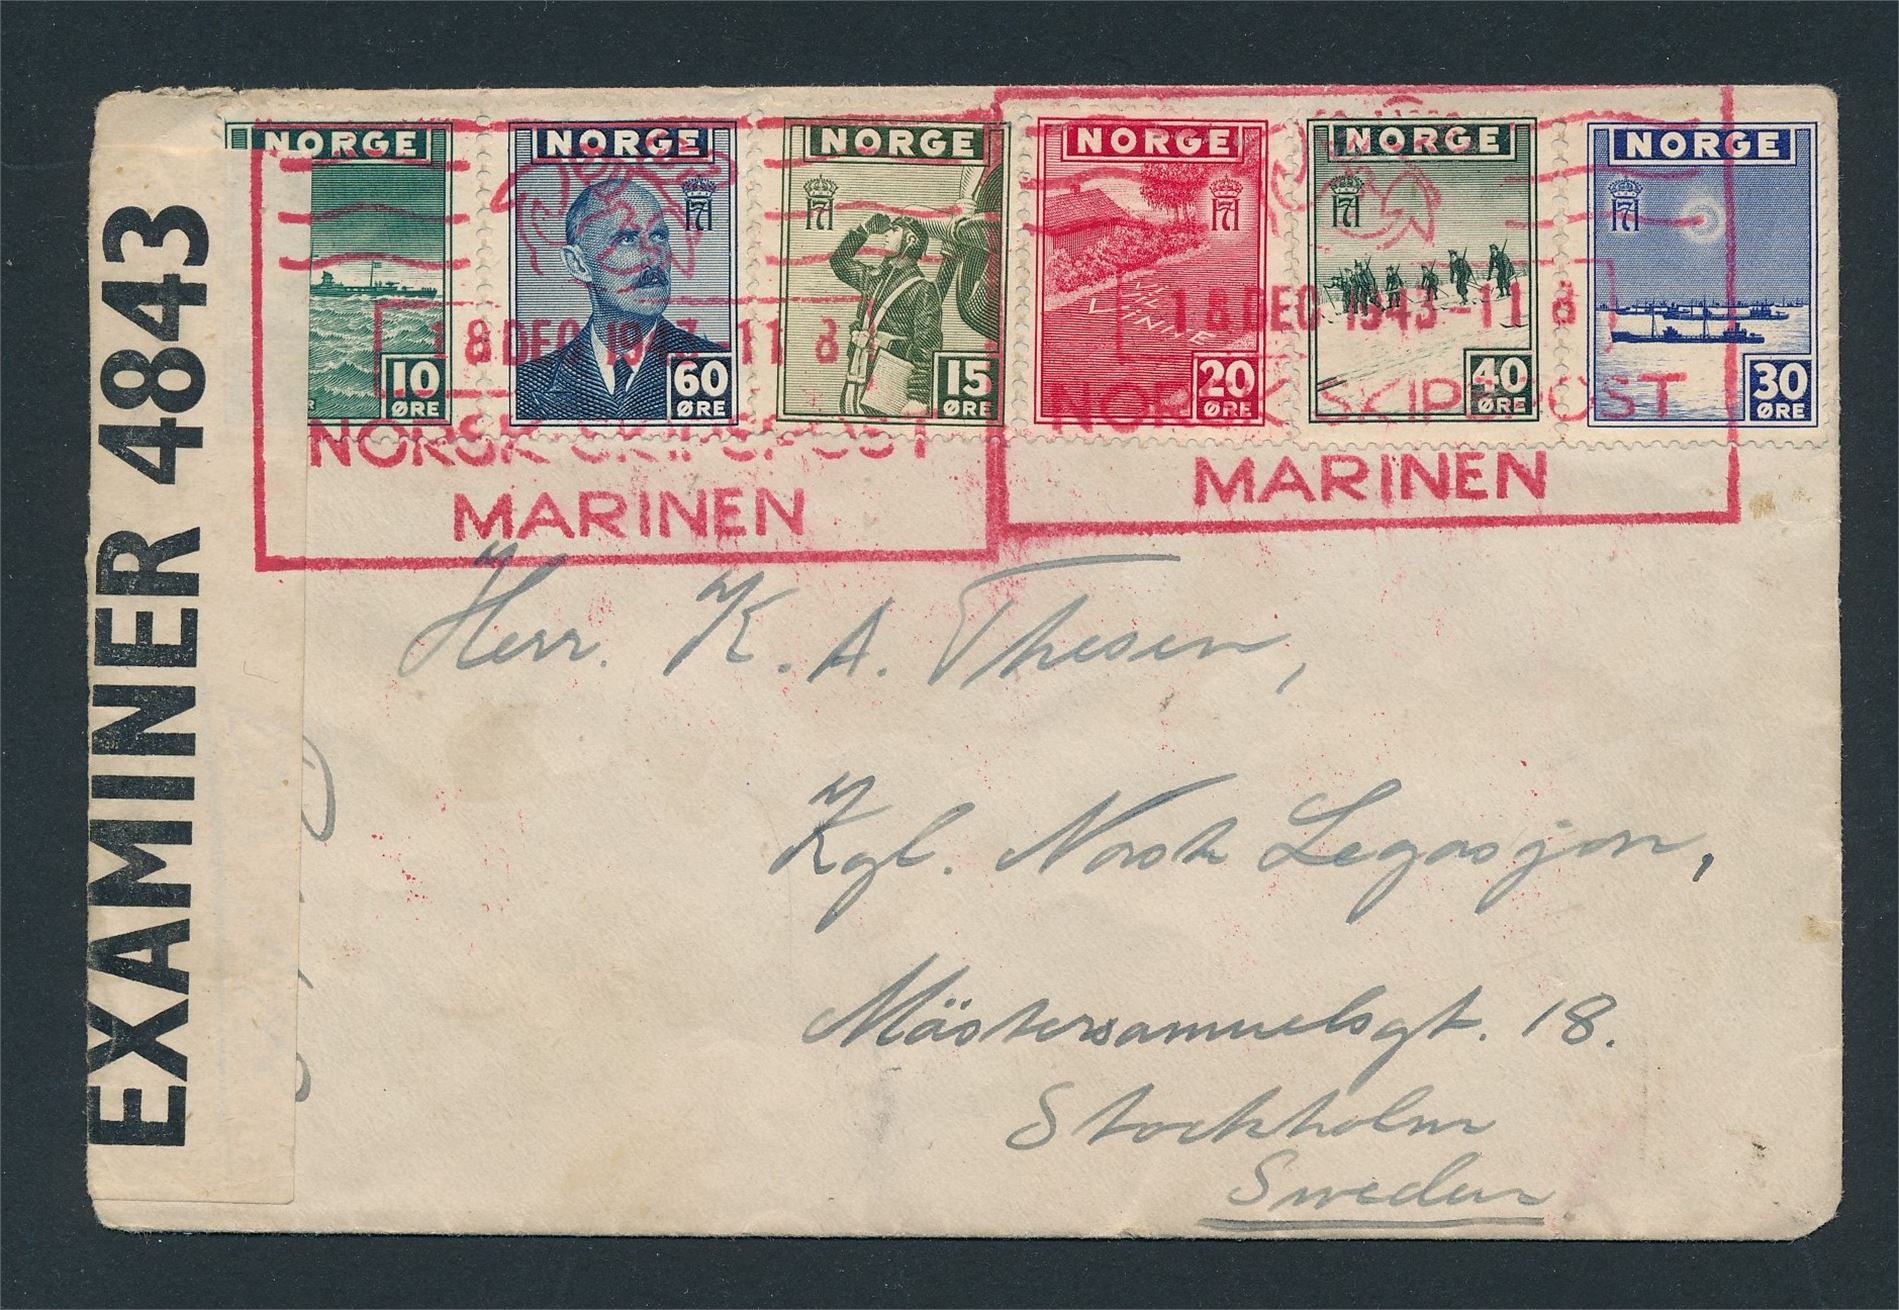 NORGE NORGE NORGE NORGE NORGE NORGE
VI VIL VINNE
10 ØRE 60 ØRE 15 ØRE 20 ØRE 40 ØRE 30 ØRE
18 DEC 1943 -11 8
NORSK SKIPSPOST
MARINEN
18 DEC 1943 -11 8
NORSK SKIPSPOST
MARINEN
EXAMINER 4843
Herr. K. A. Thesen,
Kgl. Norsk Legasjon,
Mästersamuelsgt. 18.
Stockholm
Sweden